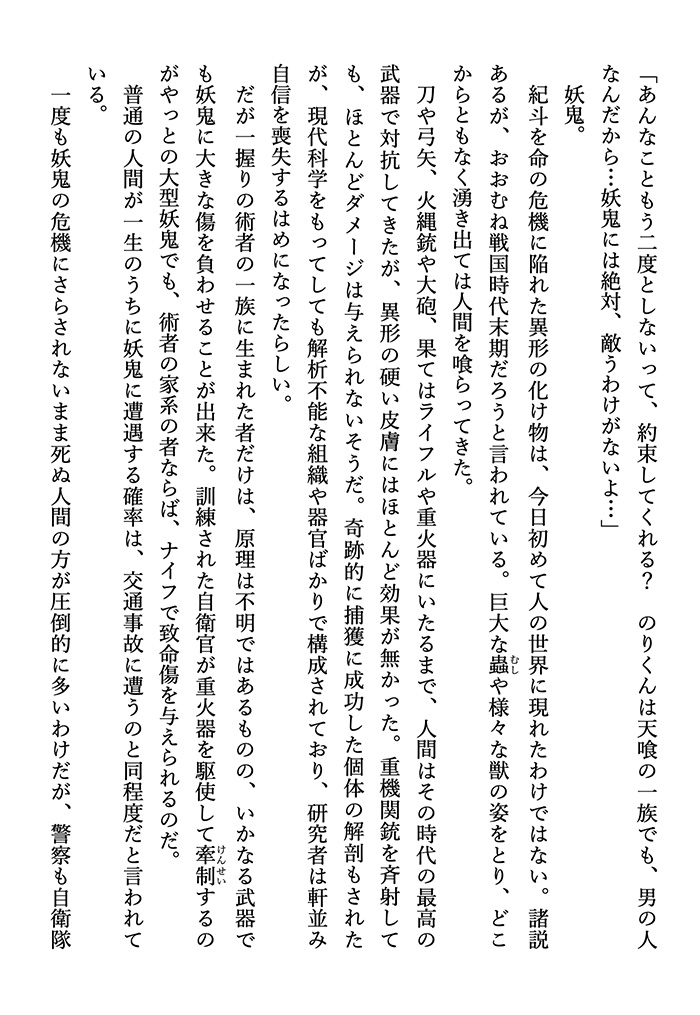 「あんなこともう二度としないって、約束してくれる？　のりくんは天喰の一族でも、男の人
なんだから…妖鬼には絶対、敵うわけがないよ…」
妖鬼。
紀斗を命の危機に陥れた異形の化け物は、今日初めて人の世界に現れたわけではない。諸説
あるが、おおむね戦国時代末期だろうと言われている。巨大な蟲や様々な獣の姿をとり、どこ
むし
からともなく湧き出ては人間を喰らってきた。
刀や弓矢、火縄銃や大砲、果てはライフルや重火器にいたるまで、人間はその時代の最高の
武器で対抗してきたが、異形の硬い皮膚にはほとんど効果が無かった。重機関銃を斉射して
も、ほとんどダメージは与えられないそうだ。奇跡的に捕獲に成功した個体の解剖もされた
が、現代科学をもってしても解析不能な組織や器官ばかりで構成されており、研究者は軒並み
自信を喪失するはめになったらしい。
だが一握りの術者の一族に生まれた者だけは、原理は不明ではあるものの、いかなる武器で
も妖鬼に大きな傷を負わせることが出来た。訓練された自衛官が重火器を駆使して牽制するの
けんせい
がやっとの大型妖鬼でも、術者の家系の者ならば、ナイフで致命傷を与えられるのだ。
普通の人間が一生のうちに妖鬼に遭遇する確率は、交通事故に遭うのと同程度だと言われて
いる。
一度も妖鬼の危機にさらされないまま死ぬ人間の方が圧倒的に多いわけだが、警察も自衛隊